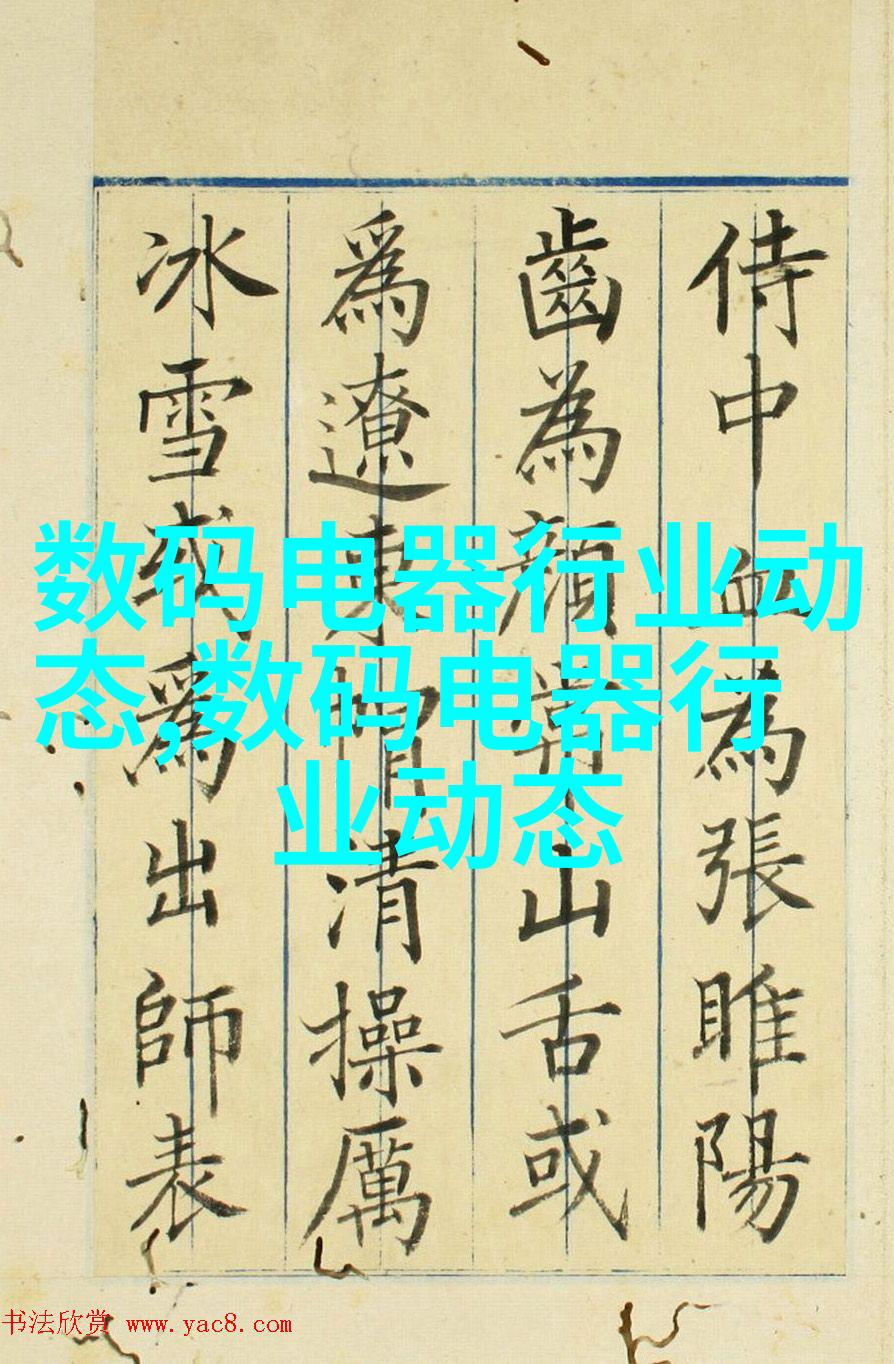 侍中血為張睢陽
齒為顏常山舌或
爲遼東帽清操厲
冰雪或爲出師表
数码电器行业动
态,数码电器行
业动态
书法欣赏 www.yac8.com